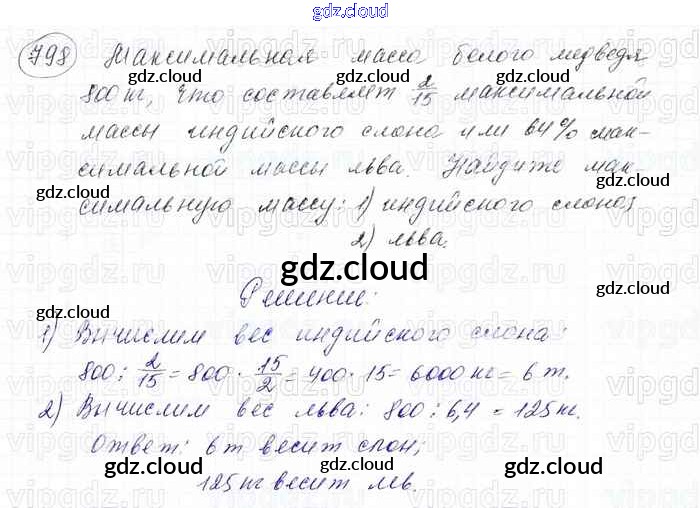 gdz.cloud
798 Максимальная масса белого медведя
gdz.cloud gdz.cloud
800 кг, что составляет 2/15 максимальной
массы индийского слона или 64% мак-
gdz.cloud
симальной массы льва. Найдите мак-
gdz.cloud gdz.cloud
симальную массу: 1) индийского слона;
2) льва.
gdz.cloud
Решение:
gdz.cloud gdz.cloud
1) Вычислим вес индийского слона:
800 : 2/15 = 800 · 15/2 = 400 · 15 = 6000 кг = 6 т.
gdz.cloud gdz.cloud
2) Вычислим вес льва: 800 : 6,4 = 125 кг.
gdz.cloud
Ответ: 6 т весит слон;
gdz.cloud gdz.cloud
125 кг весит лев.
gdz.cloud